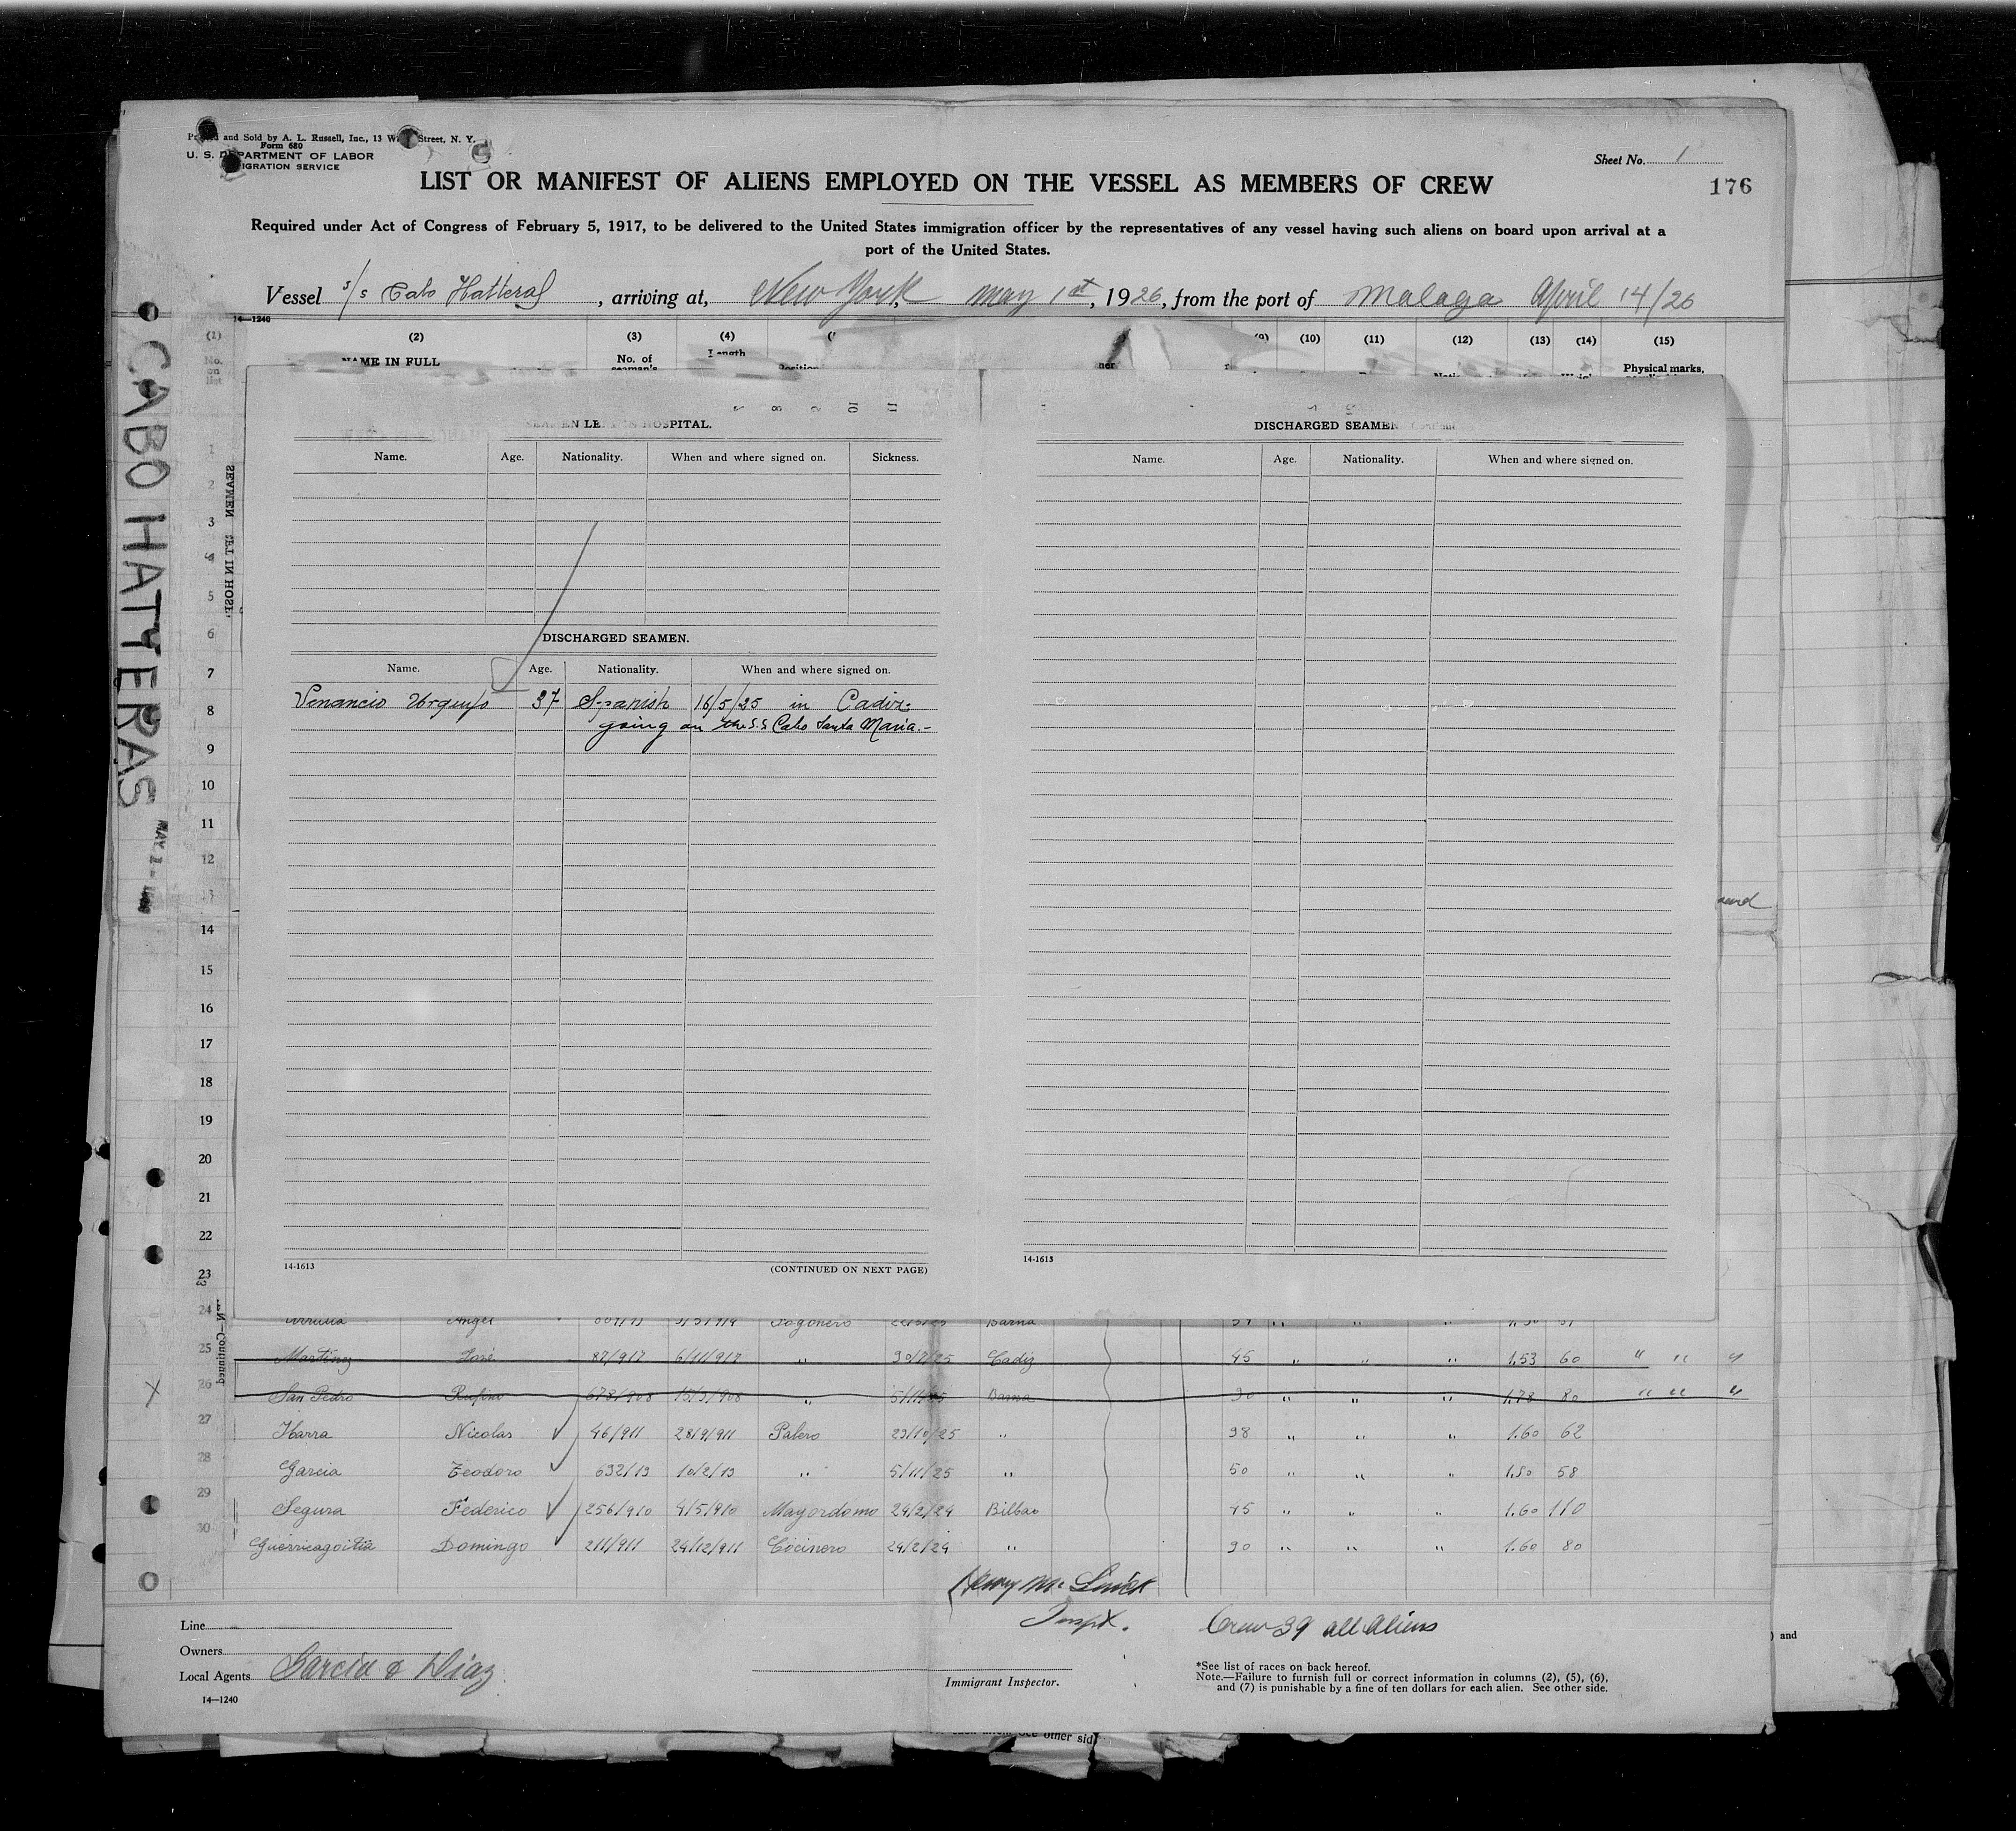 and Sold by A. L. Russell, Inc., 13 Street, N. Y.
Form 680
U. S. DEPARTMENT OF LABOR
IGRATION SERVICE
Sheet No. 1
LIST OR MANIFEST OF ALIENS EMPLOYED ON THE VESSEL AS MEMBERS OF CREW
176
Required under Act of Congress of February 5, 1917, to be delivered to the United States immigration officer by the representatives of any vessel having such aliens on board upon arrival at a
port of the United States.
Vessel s/s Cabo Hatteras, arriving at, New York, May 1st, 1926, from the port of Malaga April 14/26
14—1240
(1) (2) (3) (4) (9) (10) (11) (12) (13) (14) (15)
No. on list NAME IN FULL No. of seaman's Length Position Physical marks,
CABO HATTERAS
MAY 1-
SEAMEN LEFT IN HOSPITAL.
Name. Age. Nationality. When and where signed on. Sickness.
DISCHARGED SEAMEN.
Name. Age. Nationality. When and where signed on.
Venancio Urquijo 37 Spanish 16/5/25 in Cadiz
going on the S.S Cabo Santa Maria.-
14-1613
(CONTINUED ON NEXT PAGE)
DISCHARGED SEAMEN
Name. Age. Nationality. When and where signed on.
14-1613
1
2
3
4
5
6
7
8
9
10
11
12
13
14
15
16
17
18
19
20
21
22
23
24 Angel Fogonero Barna
25 Martinez José 87/917 6/11/917 " 30/7/25 Cadiz 45 " " " 1.53 60 " " "
26 San Pedro Rufino 678/908 15/3/908 " Barna 30 " " " 1.78 80 " " "
27 Ibarra Nicolas 46/911 28/9/911 Palero 23/10/25 " 38 " " " 1.60 62
28 Garcia Teodoro 632/13 10/2/13 " 5/11/25 " 50 " " " 1.50 58
29 Segura Federico 256/910 4/5/910 Mayordomo 24/2/24 Bilbao 45 " " " 1.60 110
30 Guerricagoitia Domingo 211/911 24/12/911 Cocinero 24/2/24 " 30 " " " 1.60 80
Inspt.
Crew 39 all Aliens
Line
Owners
Local Agents Garcia & Diaz
14—1240
Immigrant Inspector.
*See list of races on back hereof.
Note.—Failure to furnish full or correct information in columns (2), (5), (6),
and (7) is punishable by a fine of ten dollars for each alien. See other side.
) and